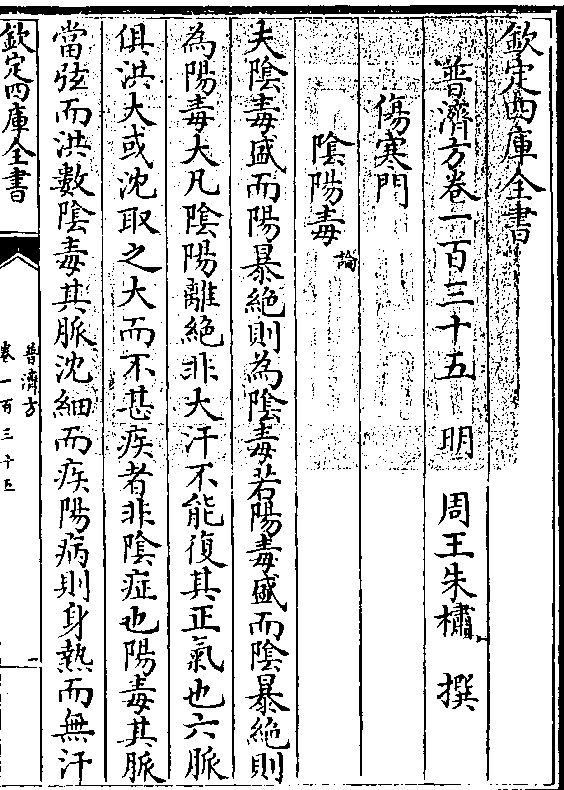 欽定四庫全書
普濟方卷一百三十五　明　周王朱橚　撰
傷寒門
陰陽毒論
夫陰毒盛而陽暴絶則為陰毒若陽毒盛而陰暴絶則
為陽毒大凡陰陽離絶非大汗不能復其正氣也六脈
俱洪大或沈取之大而不甚疾者非陰症也陽毒其脈
當弦而洪數陰毒其脈沈細而疾陽病則身熱而無汗
欽定四庫全書
普濟方
卷一百三十五
一